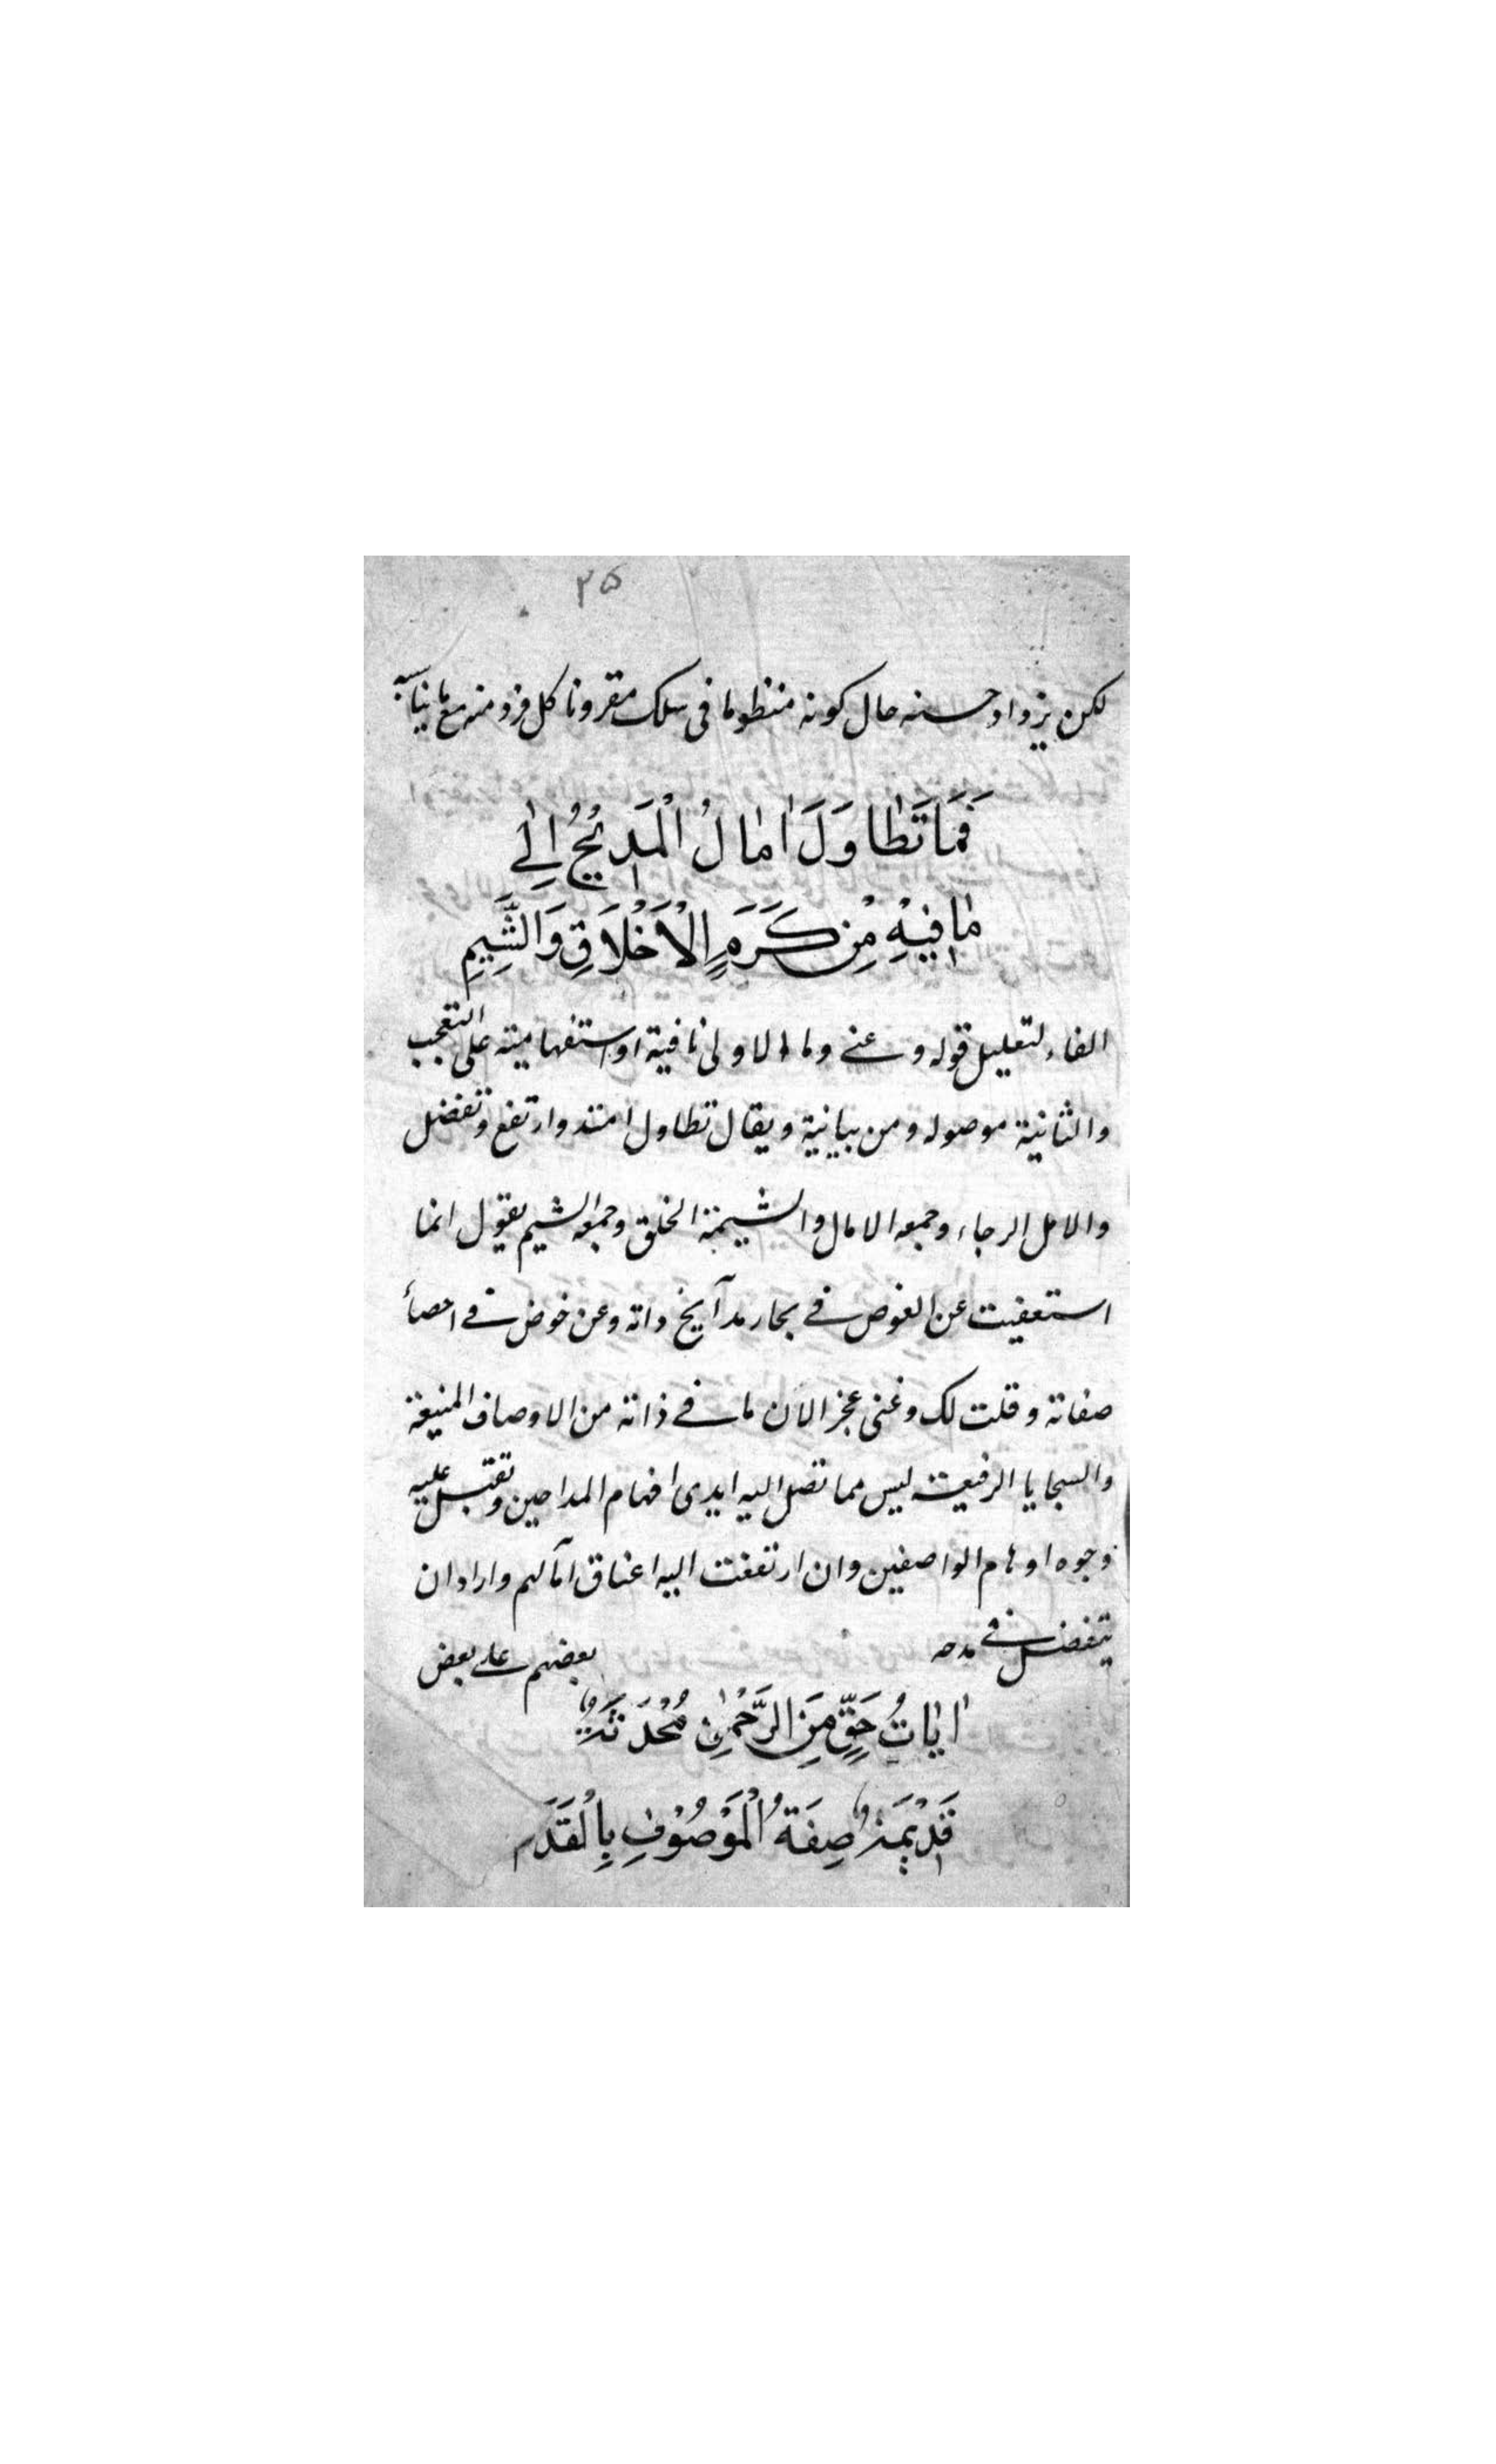 ۳۵
لكن يزداد حسنه حال كونه منظوما فى سلك مقرونا كل فرد منه مع ما يناسبه
فَمَا تَطَاوَلَ اٰمَالُ الْمَدِيْحُ اِلٰى
مَا فِيْهِ مِنْ كَرَمِ الْاَخْلَاقِ وَالشِّيَمِ
الفاء لتعليل قوله دعنى وما الاولى نافية او استفهامية على التعجب
والثانية موصوله ومن بيانية ويقال تطاول امتد وارتفع وتفضل
والامل الرجاء وجمعه الامال والشيمة الخلق وجمعه الشيم يقول انما
استعفيت عن الغوص فى بحار مدآيح ذاته وعن خوض فى احصأ
صفاته وقلت لك دعنى عجز الان ما فى ذاته من الاوصاف المنيعة
والسجايا الرفيعة ليس مما تصل اليه ايدى افهام المداحين وتقبل عليه
وجوه اوهام الواصفين وان ارتفعت اليه اعناق آمالهم واراد ان
يتفضل فى مدحه بعضهم على بعض
اٰيَاتُ حَقٍّ مِنَ الرَّحْمٰنِ مُحْدَثَةٌ
قَدِيْمَةٌ صِفَةُ الْمَوْصُوْفِ بِالْقِدَمِ